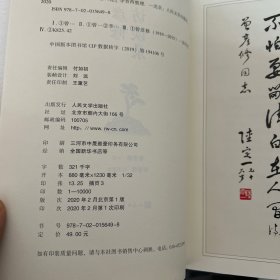 ISBN 978-7-02-015649-8
Ⅳ. ①K825.42
中国版本图书馆CIP数据核字（2019）第194106号
责任编辑 付如初
装帧设计 刘远
责任印制 王重艺
出版发行 人民文学出版社
社址 北京市朝内大街166号
邮政编码 100705
网址 http://www.rw-cn.com
印刷 三河市中晟雅豪印务有限公司
经销 全国新华书店等
字数 321千字
开本 880毫米×1230毫米 1/32
印张 13.25 插页3
印数 1—10000
版次 2020年2月北京第1版
印次 2020年2月第1次印刷
书号 978-7-02-015649-8
定价 49.00元
如有印装质量问题，请与本社图书销售中心调换。电话：
不怕要留清白在人间
曾彦修同志
陆定一